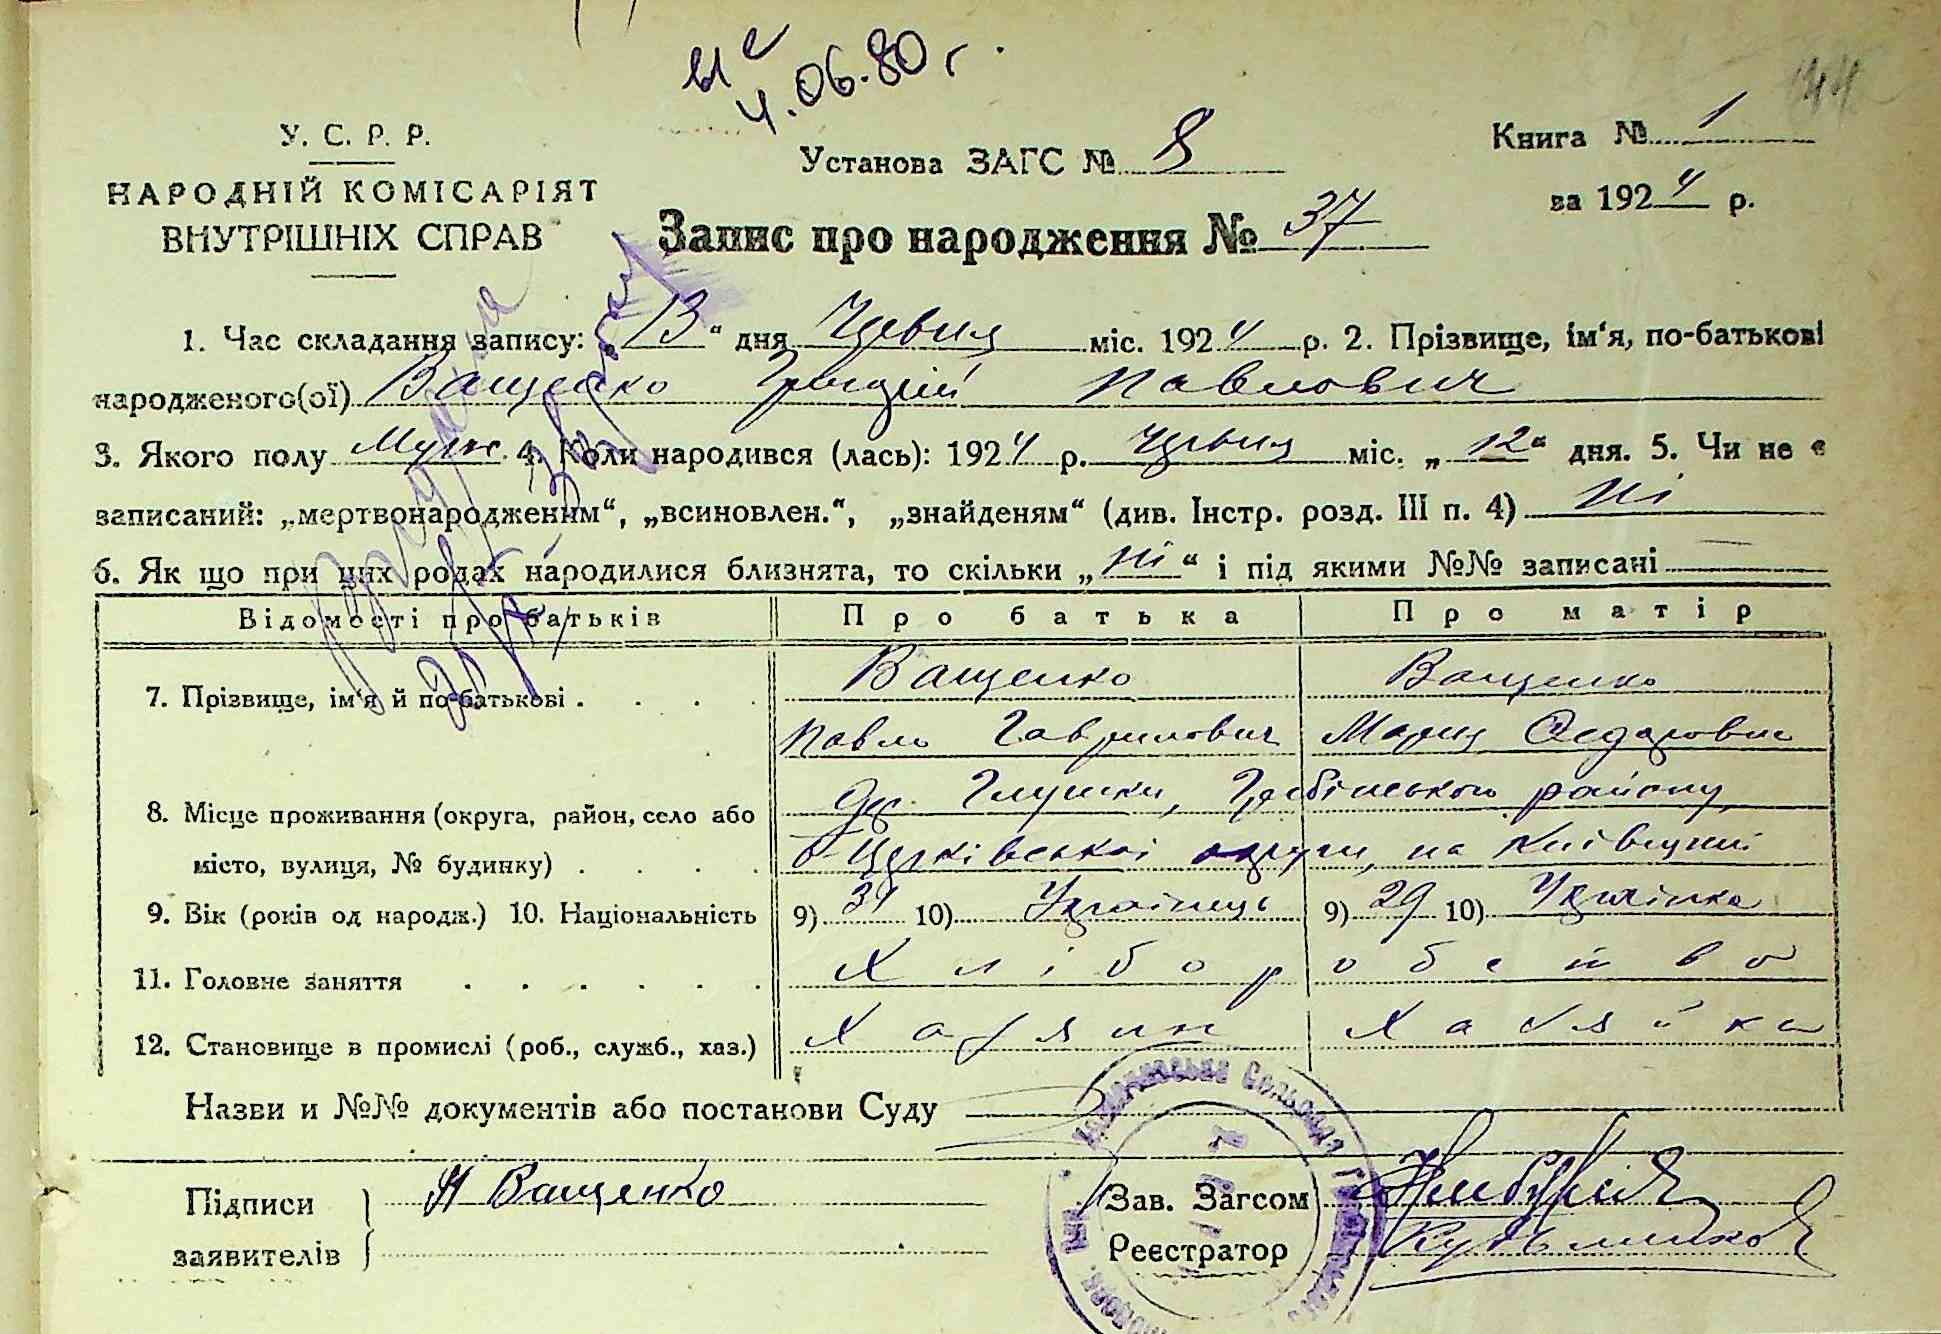 4.06.80 г.
144
У. С. Р. Р.
НАРОДНІЙ КОМІСАРІЯТ
ВНУТРІШНІХ СПРАВ
Установа ЗАГС № 8
Книга № 1
за 1924 р.
Запис про народження № 37
1. Час складання запису: „13“ дня Червня міс. 1924 р. 2. Прізвище, ім‘я, по-батькові
народженого(ої) Ващенко Григорій Павлович
3. Якого полу Муж. 4. Коли народився (лась): 1924 р. Червня міс. „12“ дня. 5. Чи не є
записаний: „мертвонародженим“, „всиновлен.“, „знайденям“ (див. Інстр. розд. III п. 4) Ні
6. Як що при цих родах народилися близнята, то скільки „ні“ і під якими №№ записані —
Відомості про батьків Про батька Про матір
7. Прізвище, ім‘я й по-батькові . . . . Ващенко Ващенко
Павло Гаврилович Мария Федоровна
8. Місце проживання (округа, район, село або Глушки, Гребінського району,
місто, вулиця, № будинку) . . . . Б-Церківської округи, на Київщині
9. Вік (років од народж.) 10. Національність 9) 31 10) Українець 9) 29 10) Українка
11. Головне заняття . . . . . . Хліборобство
12. Становище в промислі (роб., служб., хаз.) Хазяин Хазяйка
Назви и №№ документів або постанови Суду
Підписи
заявителів
П Ващенко
Зав. Загсом
Реєстратор